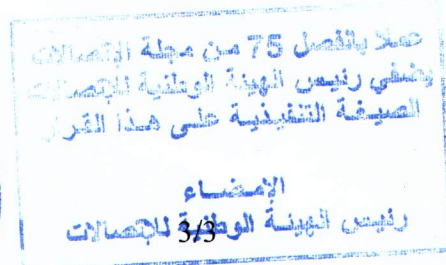 عملا بالفصل 75 من مجلة الإتصالات
يضفي رئيس الهيئة الوطنية للإتصالات
الصيغة التنفيذية على هذا القرار
الإمضاء
رئيس الهيئة الوطنية للإتصالات
3/3